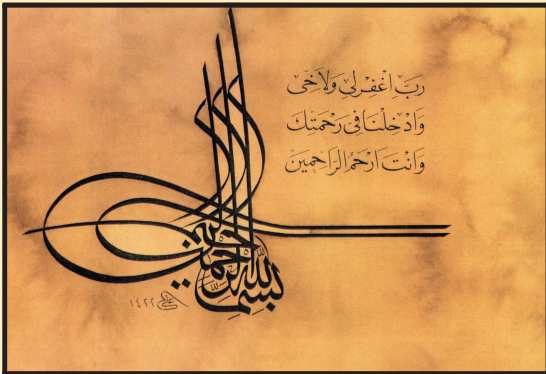 رَبِّ اغْفِرْلِى وَلِاَخِى
وَاَدْخِلْنَا فِى رَحْمَتِكَ
وَاَنْتَ اَرْحَمُ الرَّاحِمِينَ
بِسْمِ اللّٰهِ الرَّحْمٰنِ الرَّحِيمِ
١٤٢٢